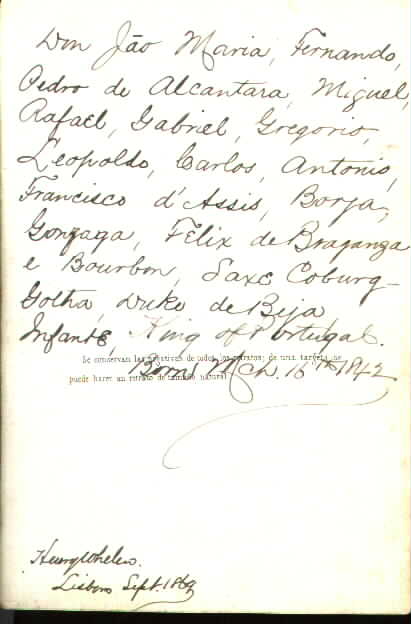 Don Jão Maria, Fernando,
Pedro de Alcantara, Miguel,
Rafael, Gabriel, Gregorio,
Leopoldo, Carlos, Antonio,
Francisco d'Assis, Borja,
Gonzaga, Felix de Braganza
e Bourbon, Saxe Coburg-
Gotha, Duke de Beja,
Infante, King of Portugal.
Se conservan las negativas de todos los retratos; de una targeta se
Born Mch. 16th 1842
puede hacer un retrato de tamaño natural
Henry Whelen.
Lisbon Sept. 1869